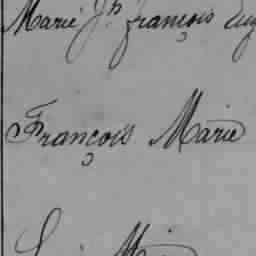 Marie Jh françois Eug
François Marie